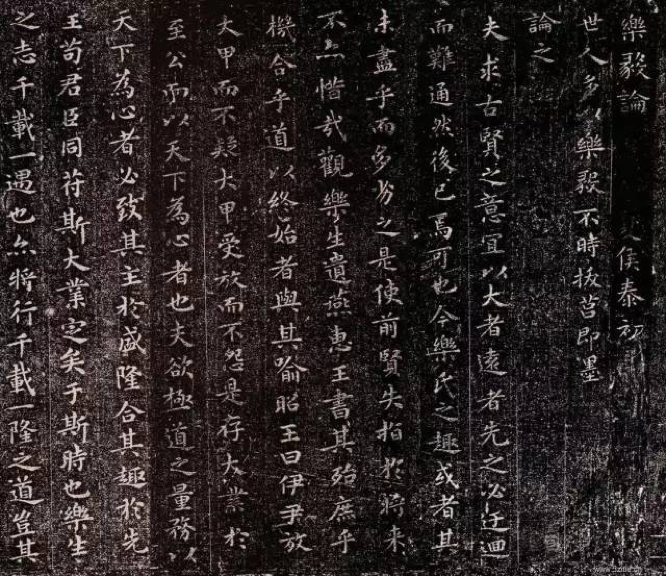 樂毅論
夏侯泰初
世人多以樂毅不時拔莒即墨
論之
夫求古賢之意宜以大者遠者先之必迂迴
而難通然後已焉可也今樂氏之趣或者其
未盡乎而多劣之是使前賢失指於將来
不亦惜哉觀樂生遺燕惠王書其殆庶乎
機合乎道以終始者與其喻昭王曰伊尹放
大甲而不疑大甲受放而不怨是存大業於
至公而以天下為心者也夫欲極道之量務以
天下為心者必致其主於盛隆合其趣於先
王苟君臣同苻斯大業定矣于斯時也樂生
之志千載一遇也亦將行千載一隆之道豈其